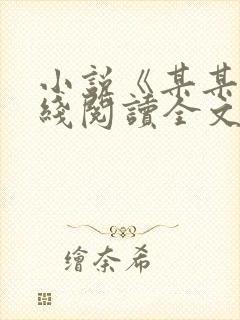 小說《某某
綫閱讀全文
繪奈希